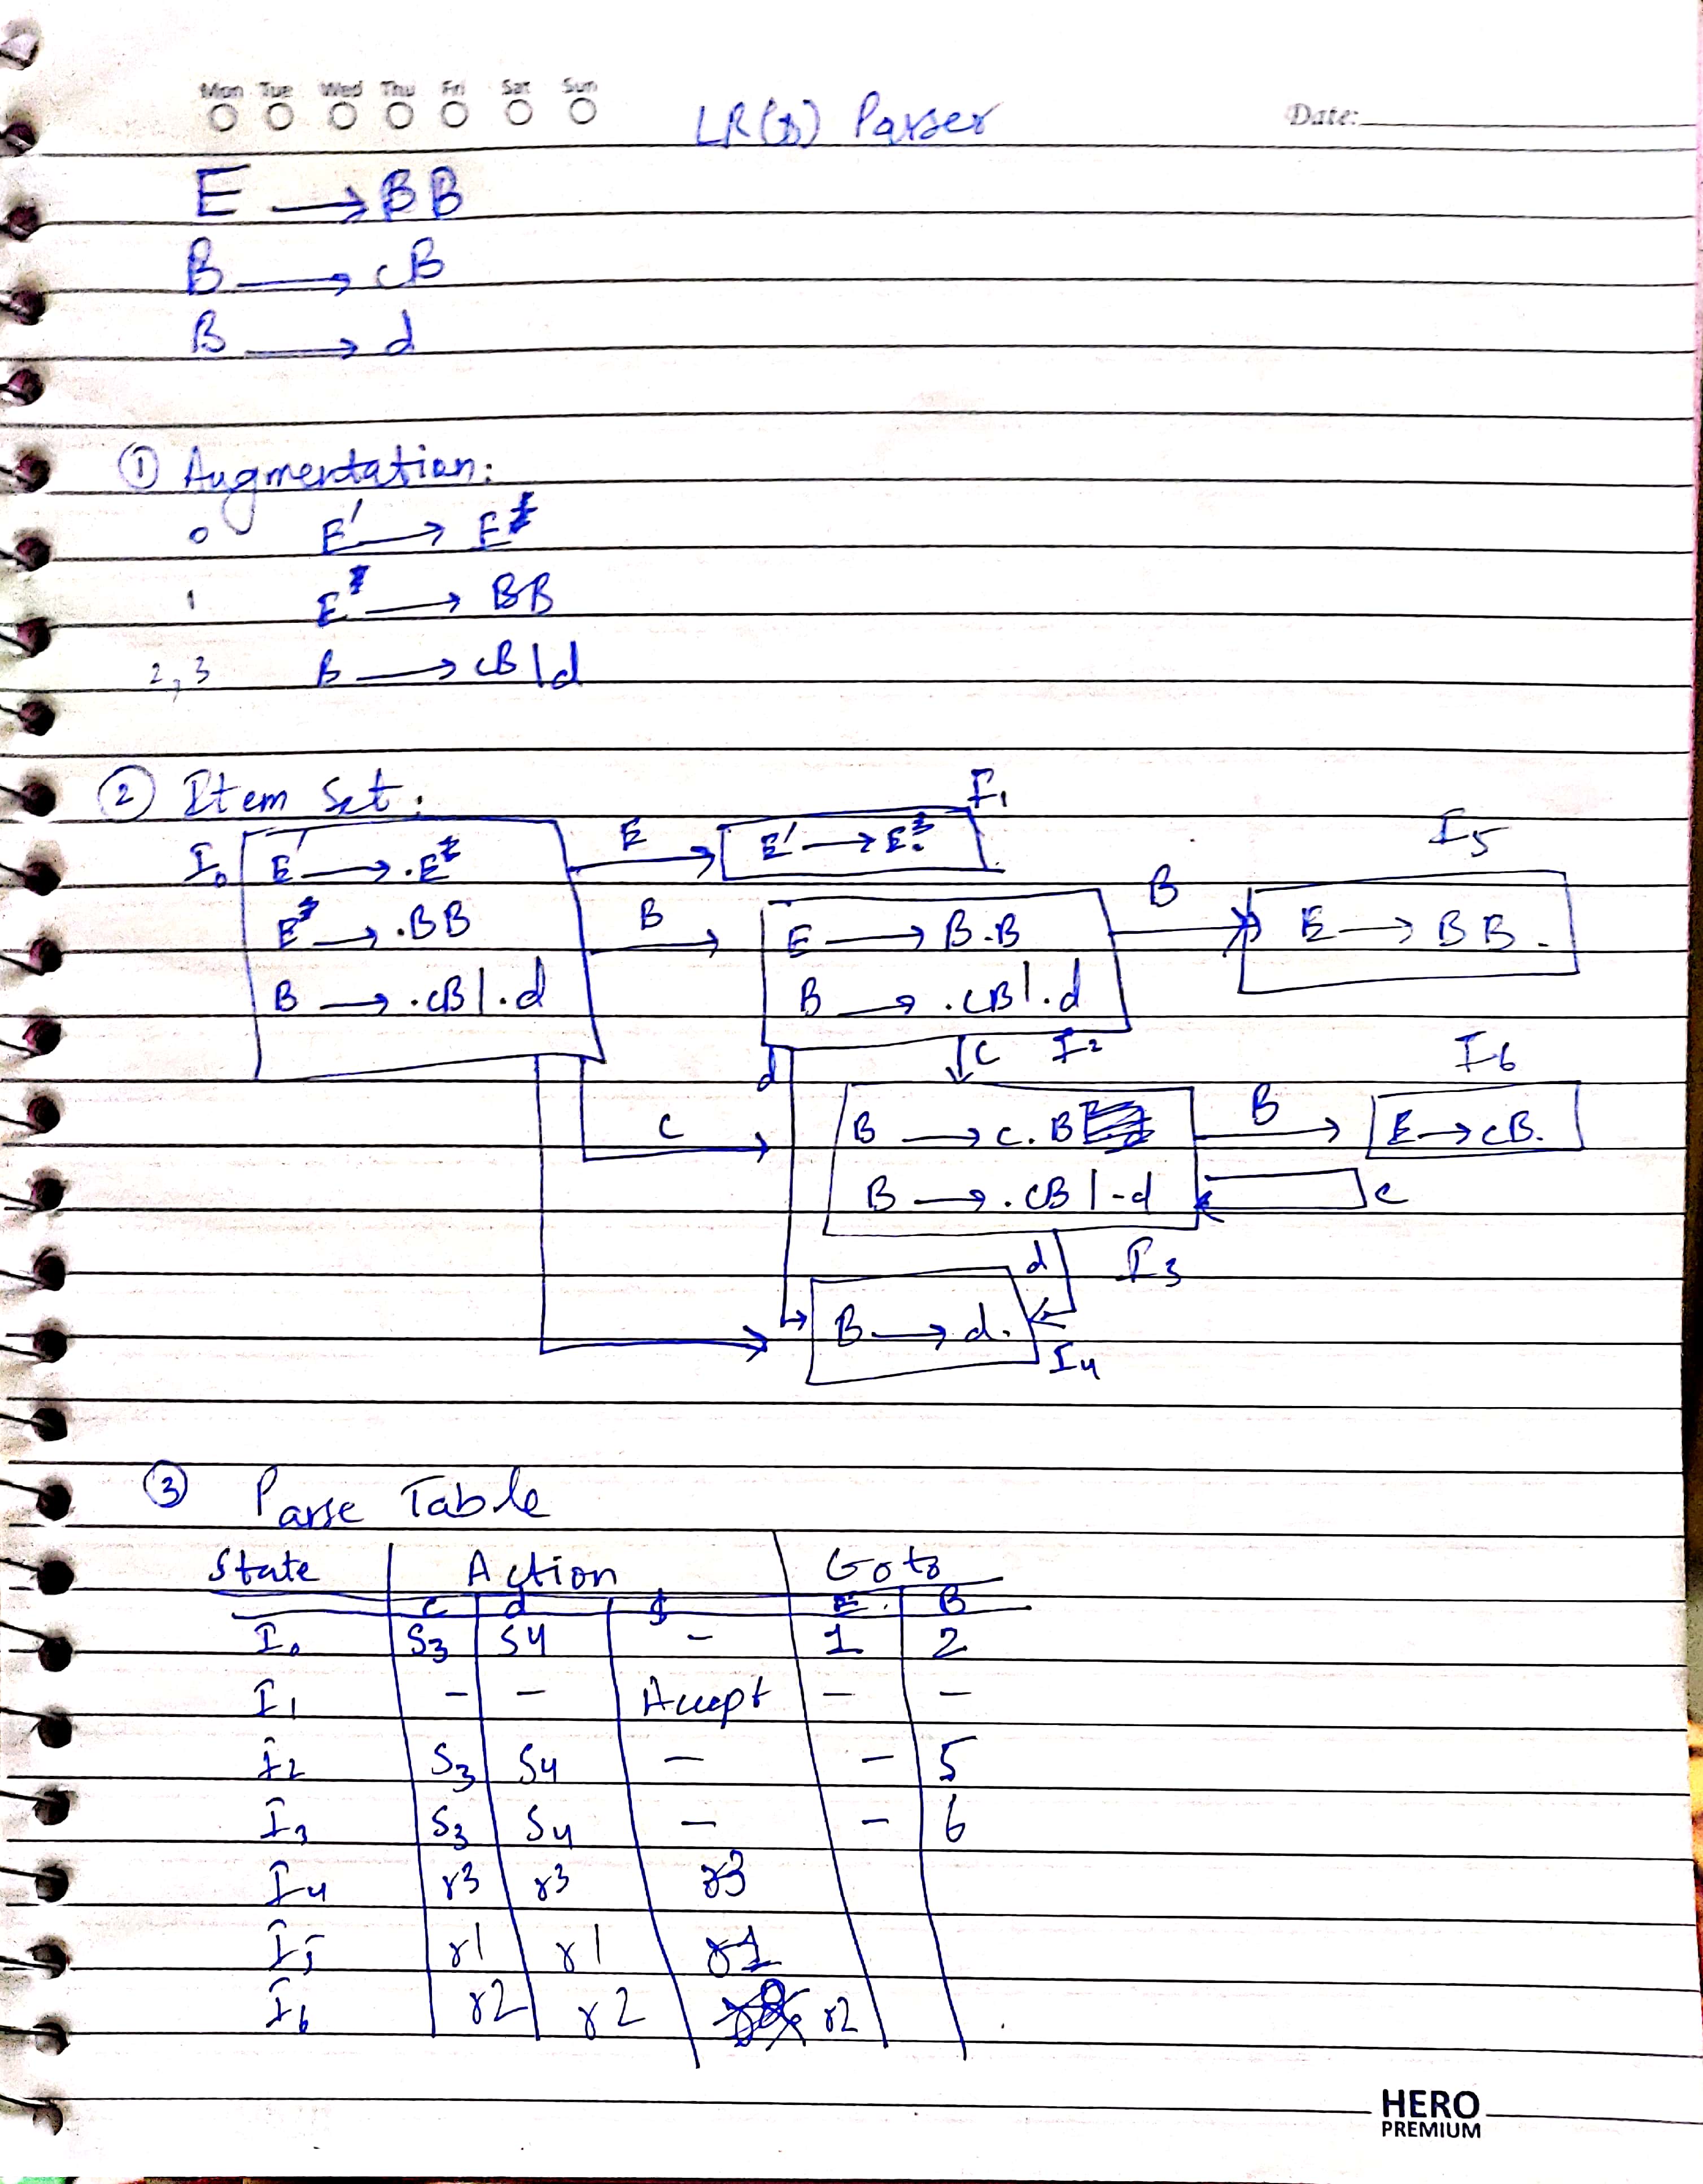 Mon Tue Wed Thu Fri Sat Sun
LR(0) Parser
Date:
E → BB
B → cB
B → d
① Augmentation:
0 E' → E
1 E → BB
2, 3 B → cB | d
② Item Set:
I0
E' → .E
E → .BB
B → .cB | .d
E
E' → E.
I1
B
E → B.B
B → .cB | .d
I2
B
E → BB.
I5
c
d
c
B → c.B
B → .cB | .d
I3
B
E → cB.
I6
c
d
B → d.
I4
③ Parse Table
State Action Goto
c d $ E B
I0 S3 S4 - 1 2
I1 - - Accept - -
I2 S3 S4 - - 5
I3 S3 S4 - - 6
I4 r3 r3 r3
I5 r1 r1 r1
I6 r2 r2 r2
HERO
PREMIUM